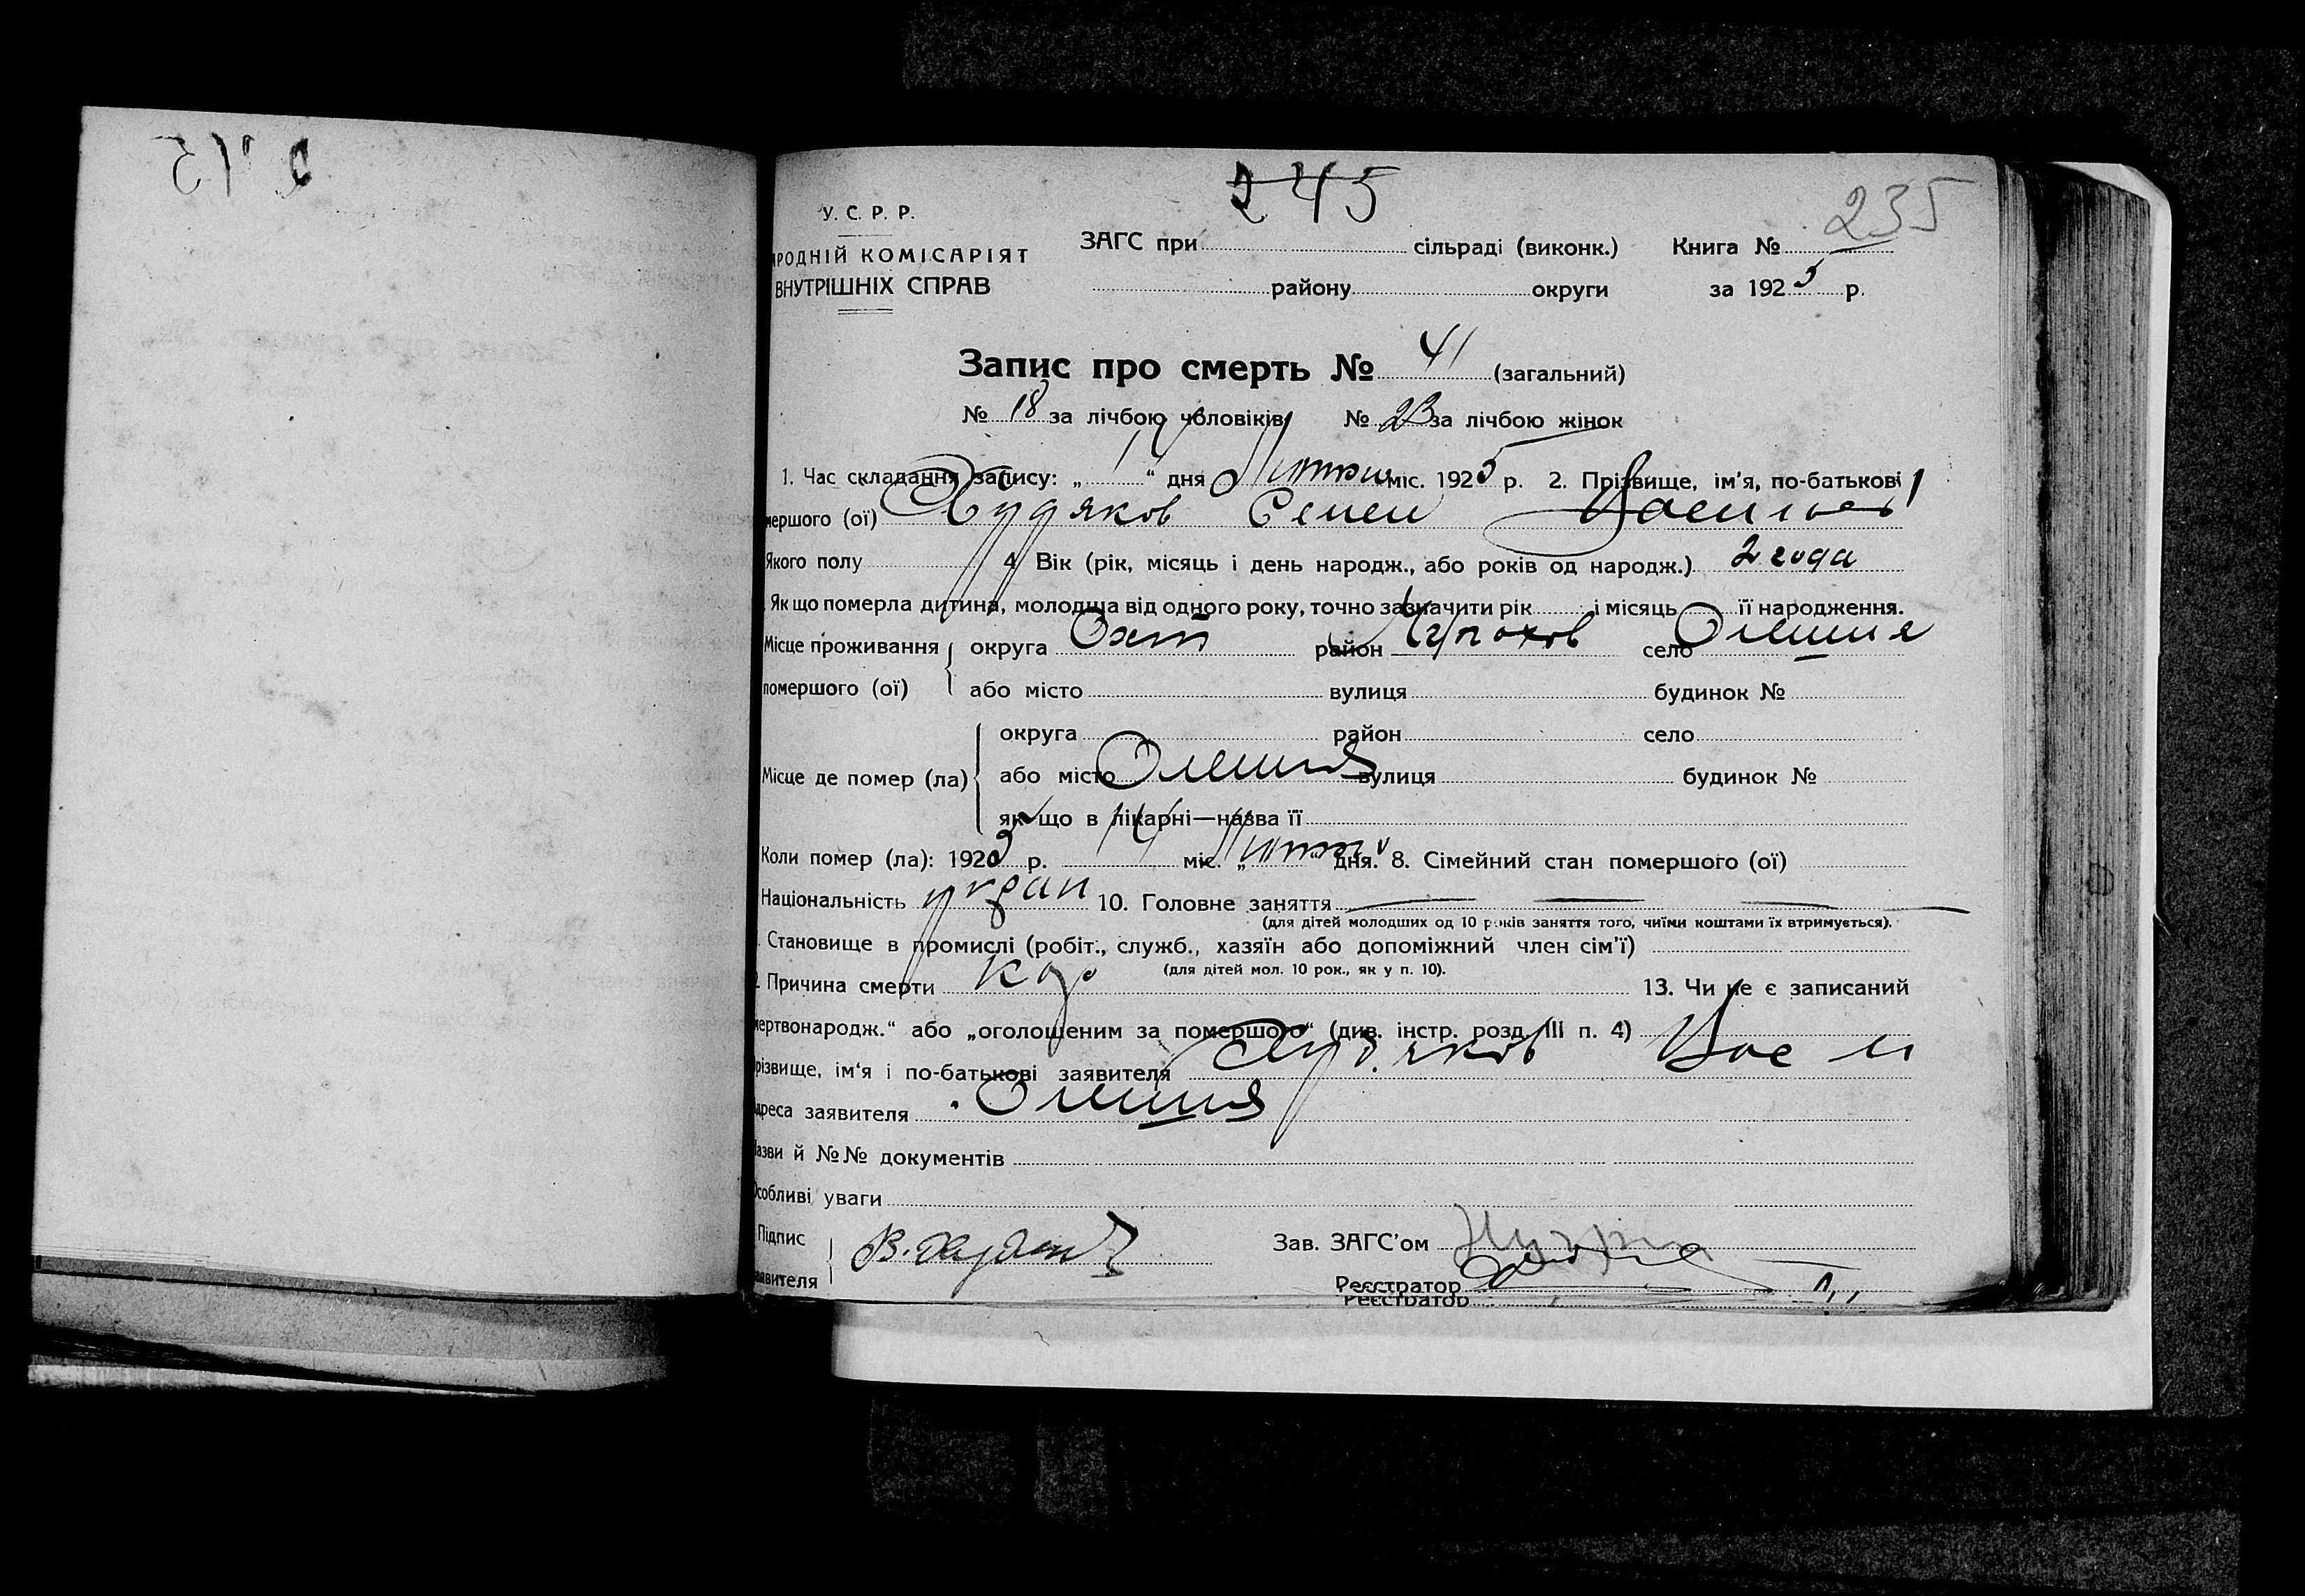 245
235
У. С. Р. Р.
РОДНІЙ КОМІСАРІЯТ
ВНУТРІШНІХ СПРАВ
ЗАГС при сільраді (виконк.) Книга №
району округи за 1925 р.
Запис про смерть № 41 (загальний)
№ 18 за лічбою чоловіків № 23 за лічбою жінок
1. Час складання запису: „14“ дня міс. 1925 р. 2. Прізвище, ім'я, по-батькові
мершого (ої) Худяков Семен
Якого полу 4. Вік (рік, місяць і день народж., або років од народж.) 2 года
Як що померла дитина, молодша від одного року, точно зазначити рік і місяць її народження.
Місце проживання округа Охт район село Олешня
помершого (ої) або місто вулиця будинок №
округа район село
Місце де помер (ла) або місто Олешня вулиця будинок №
як що в лікарні—назва її
Коли помер (ла): 1925 р. 14 міс. „ “ дня. 8. Сімейний стан помершого (ої)
Національність укран 10. Головне заняття
(для дітей молодших од 10 років заняття того, чиїми коштами їх втримується).
Становище в промислі (робіт., служб., хазяїн або допоміжний член сім'ї)
(для дітей мол. 10 рок., як у п. 10).
Причина смерти Кор 13. Чи не є записаний
мертвонародж.“ або „оголошеним за помершого“ (див. інстр. розд. III п. 4)
різвище, ім'я і по-батькові заявителя Худяков Вас
дреса заявителя Олешня
азви й №№ документів
собливі уваги
Підпис
аявителя
Зав. ЗАГС'ом
Реєстратор
Реєстратор